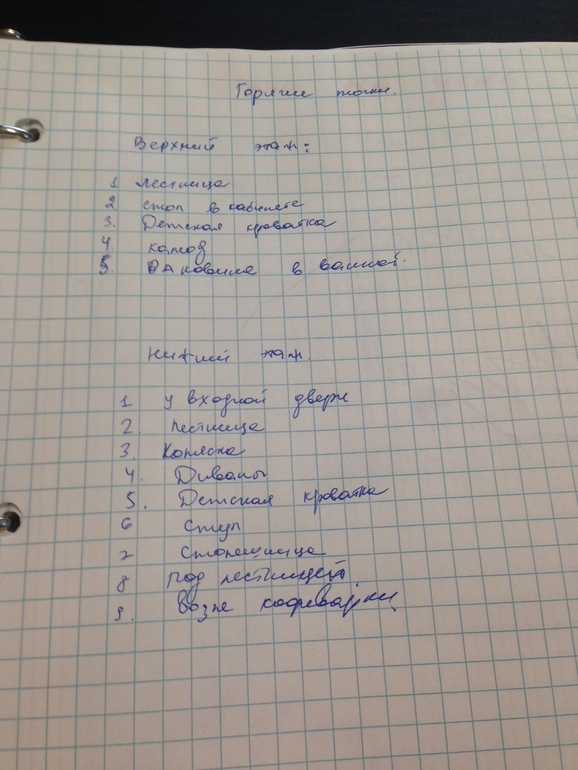 Горячие точки.
Верхний этаж:
1 лестница
2 стол в кабинете
3. Детская кроватка
4. комод
5 Раковина в ванной.
Нижний этаж.
1 у входной двери
2 лестница
3. Коляска
4. Диваны
5. Детская кроватка
6 Стул
7 Столешница
8 под лестницей
9. Возле кофеварки